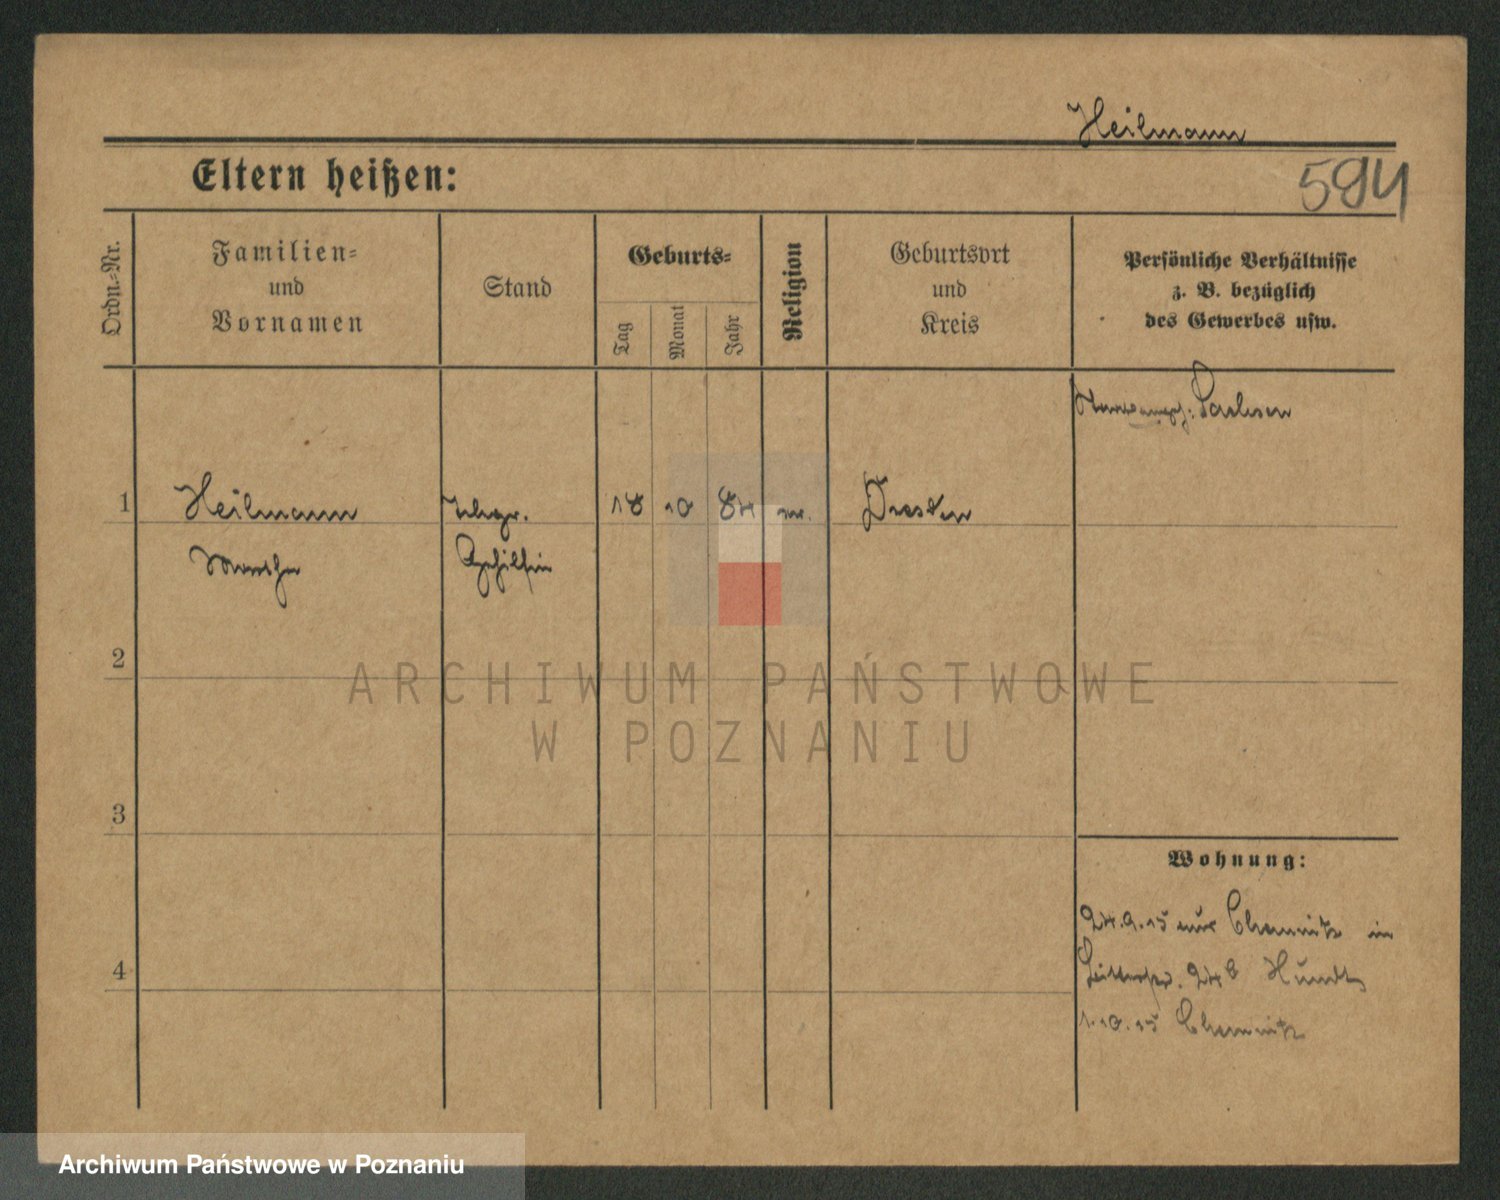 Heilmann
Eltern heißen:
594
Ordn.-Nr.
Familien-
und
Vornamen
Stand
Geburts-
Tag
Monat
Jahr
Religion
Geburtsort
und
Kreis
Persönliche Verhältnisse
z. B. bezüglich
des Gewerbes usw.
Sachsen
1
Heilmann
18
10
84
ev.
Dresden
Martha
Gehilfin
2
3
Wohnung:
24.9.15 aus Chemnitz in
24 b Hundt
4
1.10.15 Chemnitz
ARCHIWUM PAŃSTWOWE
W POZNANIU
Archiwum Państwowe w Poznaniu